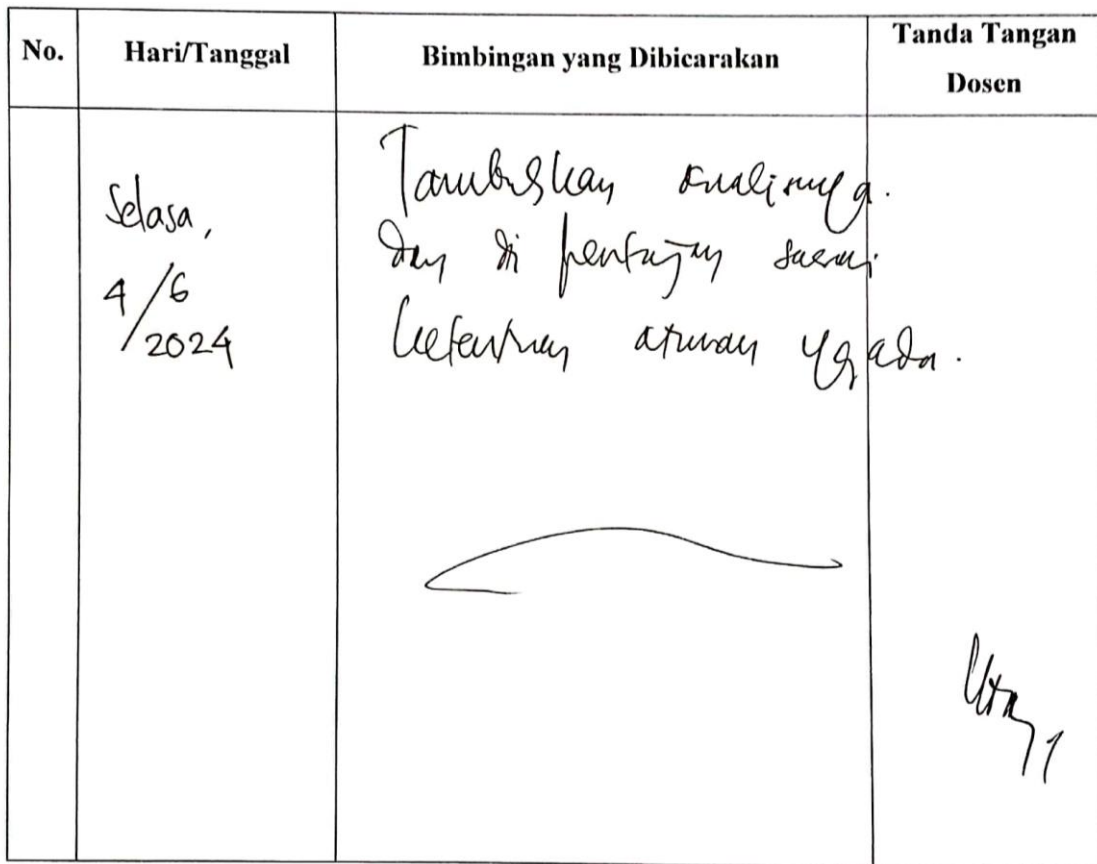 No. Hari/Tanggal Bimbingan yang Dibicarakan Tanda Tangan Dosen
Selasa,
4/6
/2024
Tambahkan analisnya.
dan di sesuai
ketentuan aturan yg ada.